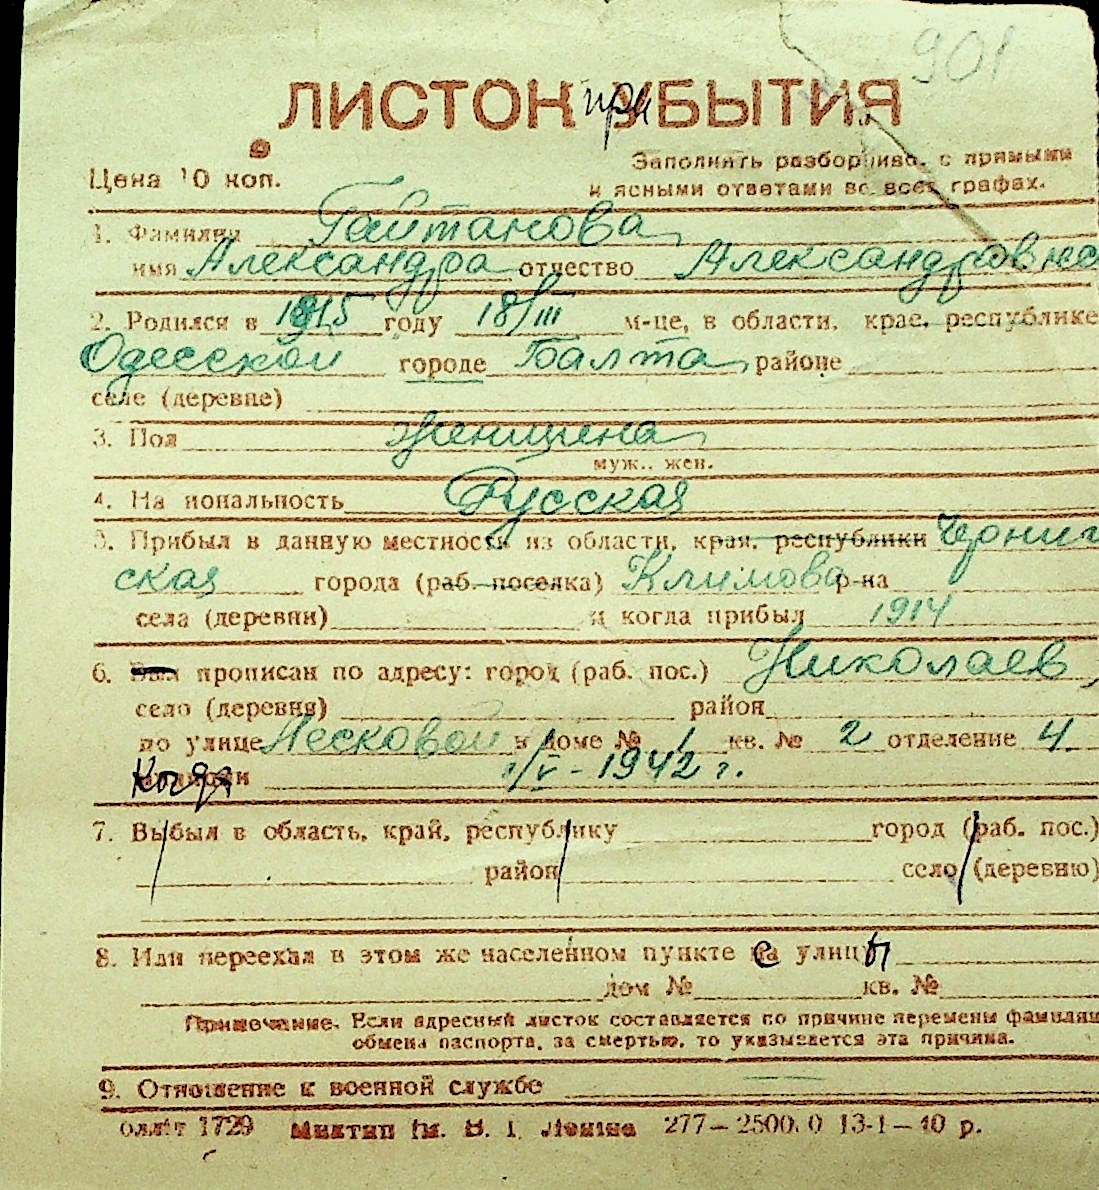 901
ЛИСТОК при УБЫТИЯ
Цена 10 коп.
Заполнять разборчиво, с прямыми
и ясными ответами во всех графах.
1. Фамилия Гайтанова
имя Александра отчество Александровна
2. Родился в 1915 году 18/III м-це, в области, крае, республике
Одесской городе Балта районе
селе (деревне)
3. Пол женщина
муж., жен.
4. Национальность Русская
5. Прибыл в данную местность из области, края, республики Черниг
ская города (раб. поселка) Климова р-на
села (деревни) и когда прибыл 1914
6. Был прописан по адресу: город (раб. пос.) Николаев,
село (деревня) район
по улице Лесковой в доме № 1 кв. № 2 отделение 4.
Когда милиции 1/V - 1942 г.
7. Выбыл в область, край, республику город (раб. пос.)
район село (деревню)
8. Или переехал в этом же населенном пункте с улицы
дом № кв. №
Примечание. Если адресный листок составляется по причине перемены фамилии
обмена паспорта, за смертью, то указывается эта причина.
9. Отношение к военной службе —
1729 им. В. И. Ленина 277—2500.0 13-1—40 р.